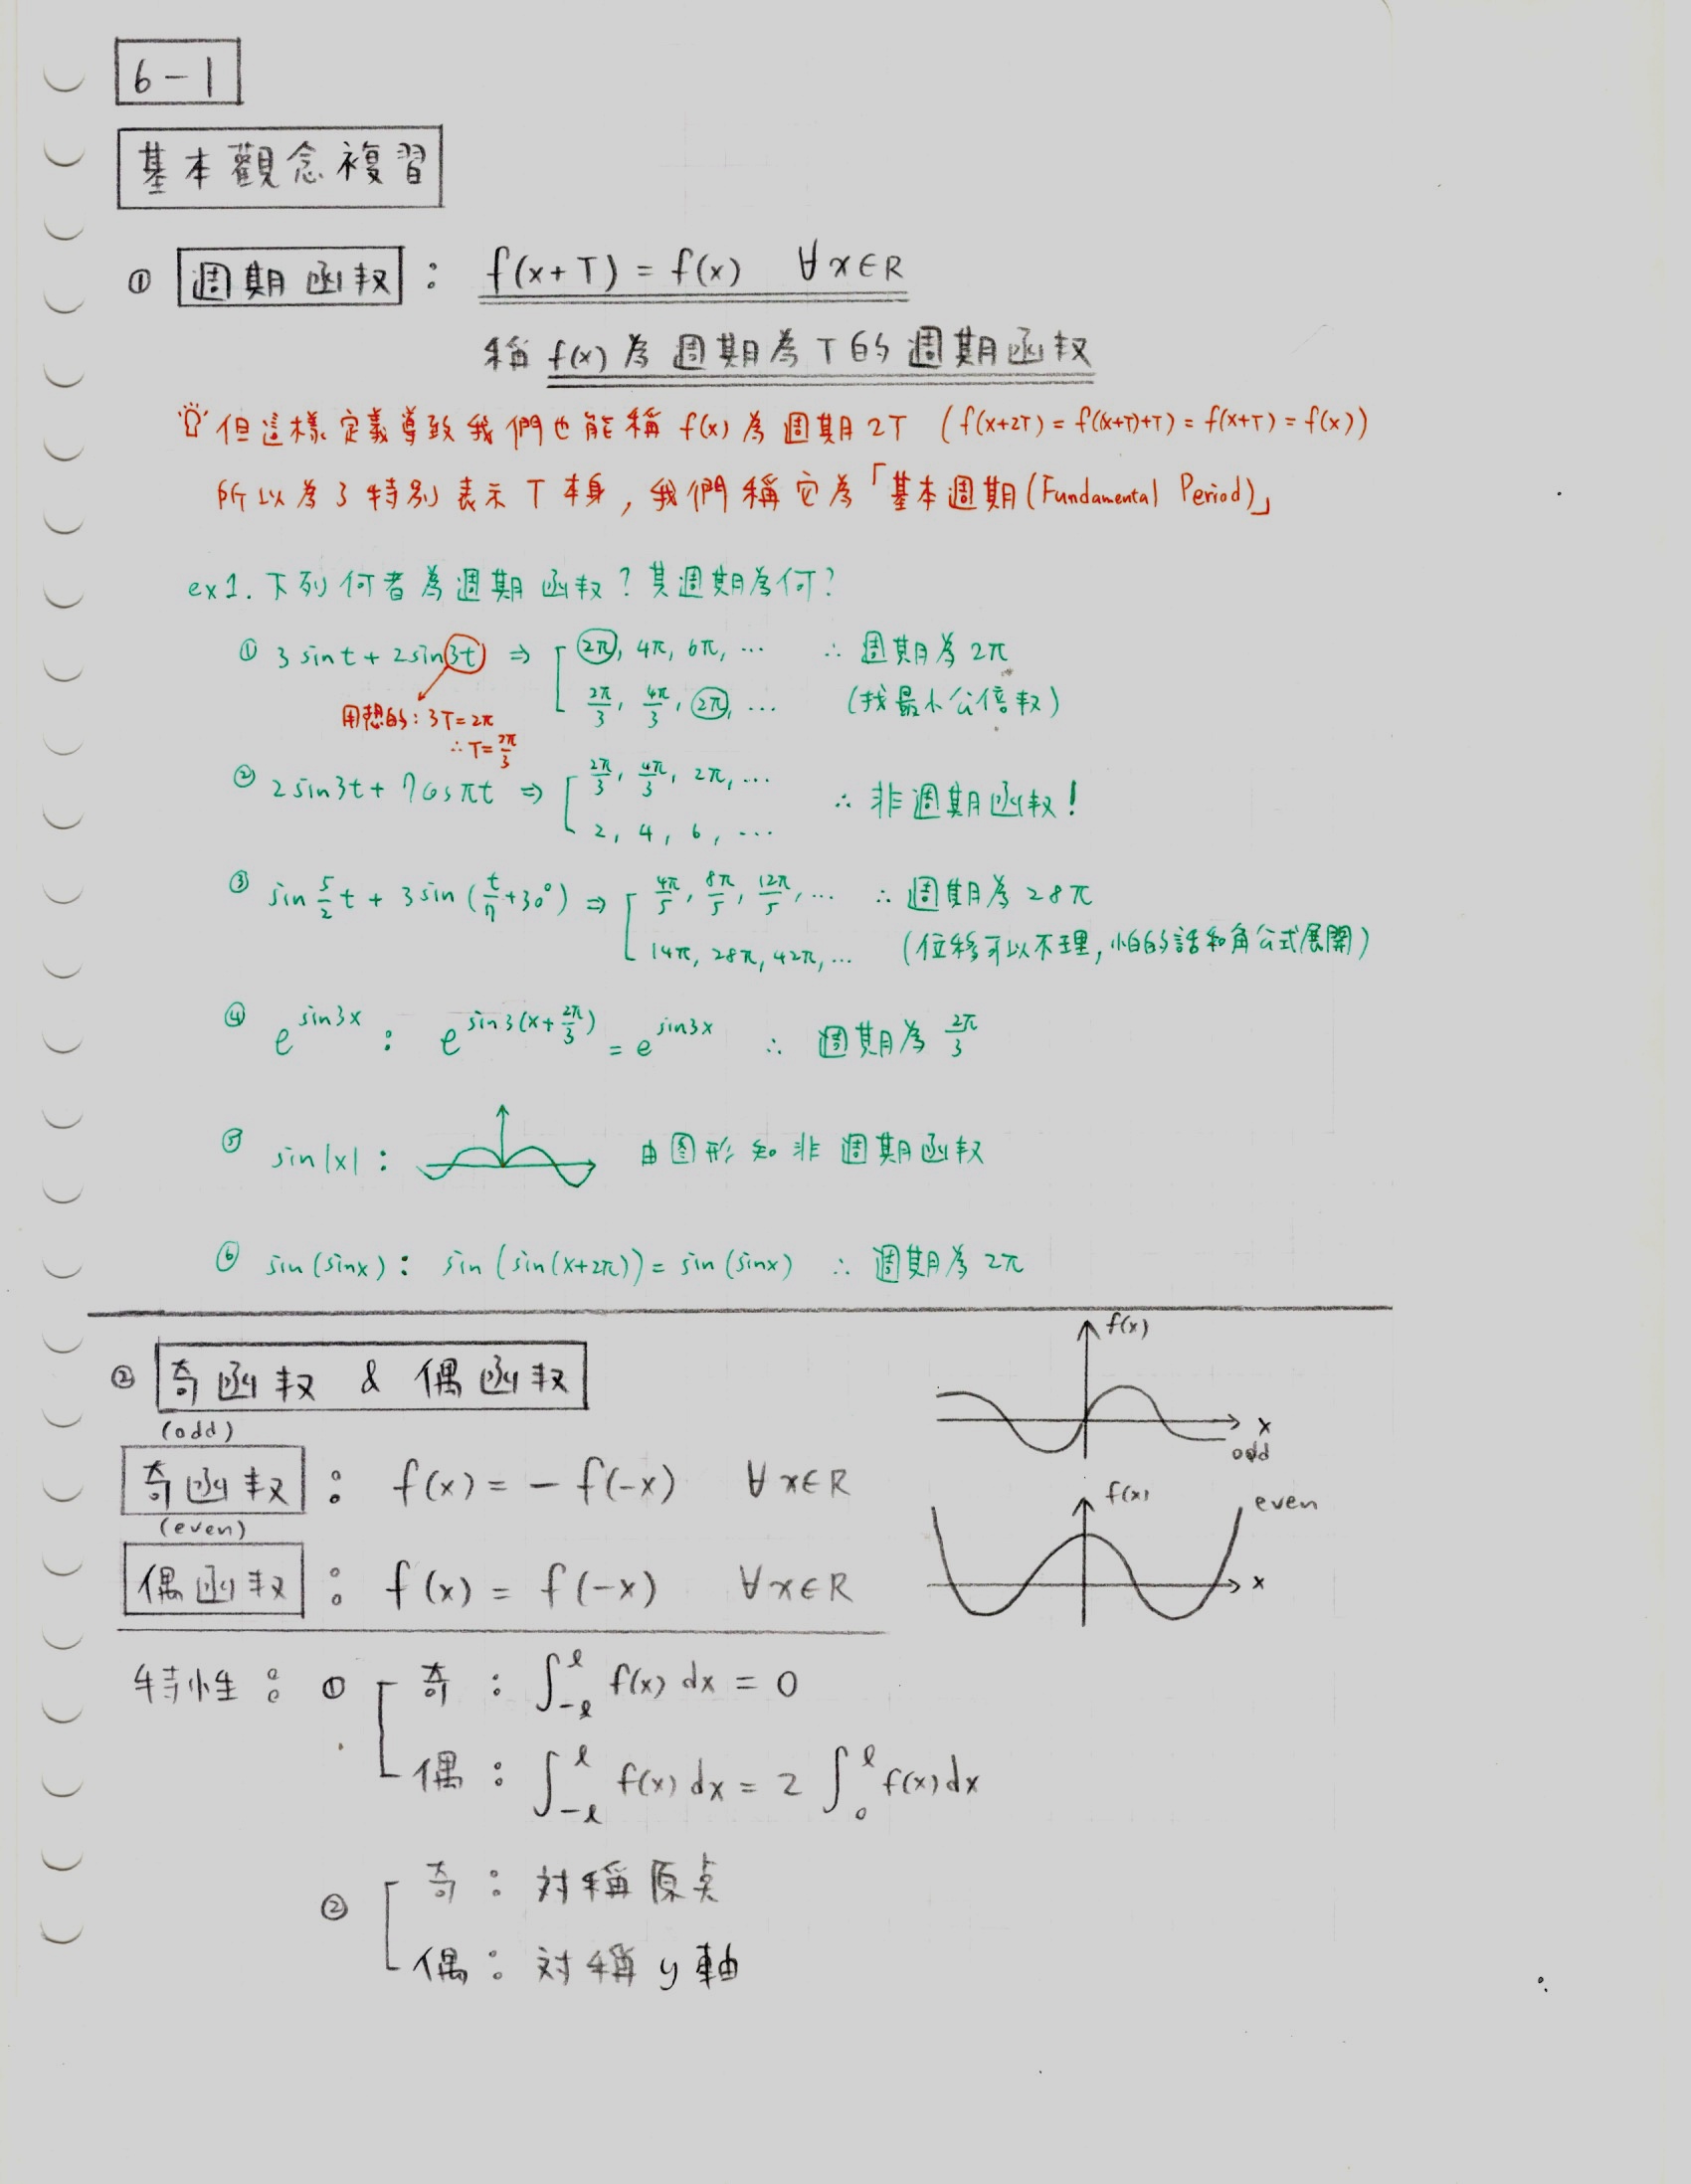 6-1
基本觀念複習
① 週期函数 : f(x+T) = f(x) ∀x∈R
稱 f(x) 為週期為T的週期函数
但這樣定義導致我們也能稱 f(x) 為週期 2T (f(x+2T) = f((x+T)+T) = f(x+T) = f(x))
所以為了特別表示 T 本身, 我們稱它為「基本週期(Fundamental Period)」
ex1. 下列何者為週期函数? 其週期為何?
① 3 sint + 2sin3t ⇒ [ 2π, 4π, 6π, … ∴ 週期為 2π
2π/3, 4π/3, 2π, … (找最小公倍数)
用想的: 3T=2π
∴T=2π/3
② 2sin3t + 7cosπt ⇒ [ 2π/3, 4π/3, 2π, … ∴ 非週期函数!
2, 4, 6, …
③ sin 5/2 t + 3sin (t/7+30°) ⇒ [ 4π/5, 8π/5, 12π/5, … ∴ 週期為 28π
14π, 28π, 42π, … (位移可以不理, 怕的話和角公式展開)
④ e^sin3x : e^sin3(x+2π/3) = e^sin3x ∴ 週期為 2π/3
⑤ sin|x| : 由圖形知非週期函数
⑥ sin(sinx) : sin(sin(x+2π)) = sin(sinx) ∴ 週期為 2π
② 奇函数 & 偶函数
f(x)
x
odd
(odd)
奇函数 : f(x) = - f(-x) ∀x∈R
f(x)
even
x
(even)
偶函数 : f(x) = f(-x) ∀x∈R
特性 : ① [ 奇 : ∫_-ℓ^ℓ f(x) dx = 0
偶 : ∫_-ℓ^ℓ f(x) dx = 2 ∫_0^ℓ f(x) dx
② [ 奇 : 対稱原点
偶 : 対稱 y 軸